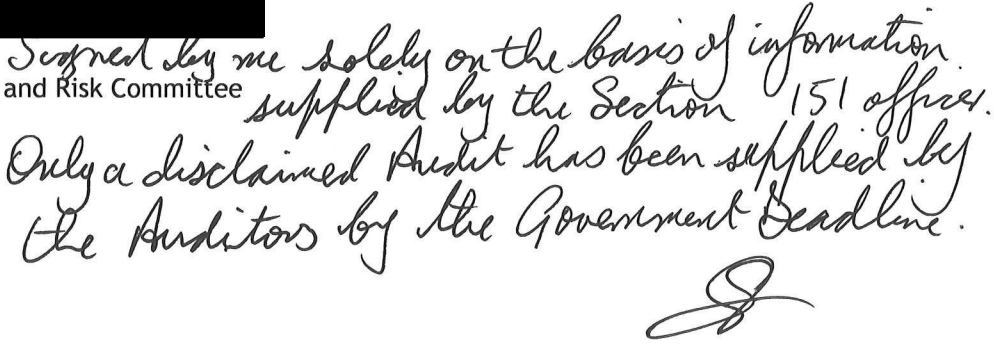 Signed by me solely on the basis of information
and Risk Committee
supplied by the Section 151 officer.
Only a disclaimed Audit has been supplied by
the Auditors by the Government Deadline.